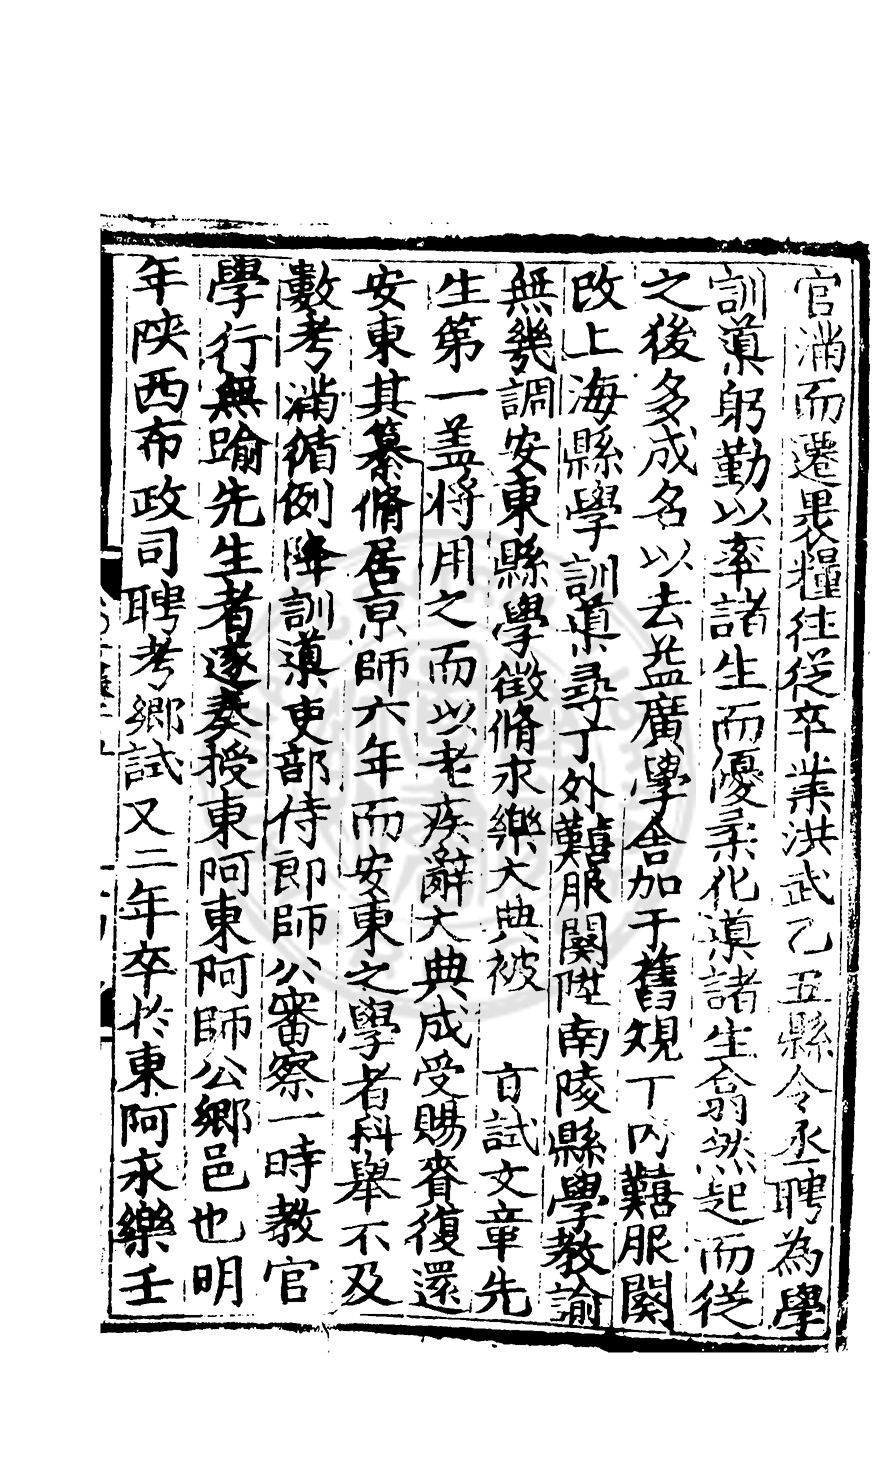 官滿而遷褁糧往從卒業洪武乙丑縣令丞聘為學
訓導躬勤以率諸生而優柔化導諸生翕然起而從
之後多成名以去益廣學舍加于舊䂓丁內囏服闋
改上海縣學訓導尋丁外囏服闋陞南陵縣學教諭
無幾調安東縣學徵脩永樂大典被 㫖試文章先
生第一盖將用之而以老疾辭大典成受賜賚復還
安東其纂脩居京師六年而安東之學者科舉不及
數考滿循例降訓導吏部侍郎師公審察一時教官
學行無踰先生者遂奏授東阿東阿師公鄉邑也明
年陝西布政司聘考鄉試又二年卒於東阿永樂壬